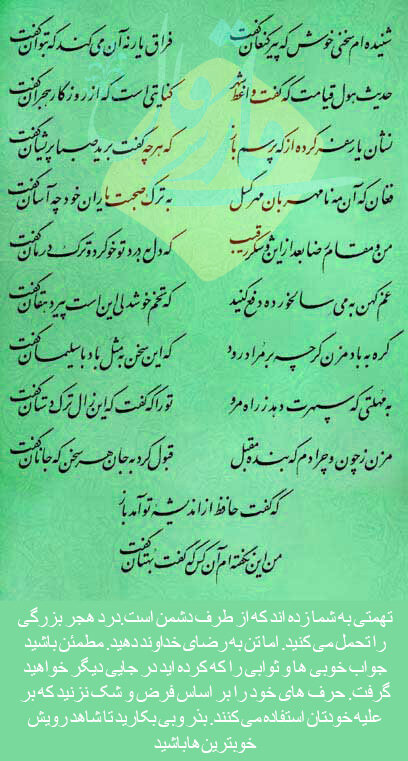 شنیده‌ام سخنی خوش که پیر کنعان گفت
فراق یار نه آن می‌کند که بتوان گفت
حدیث هول قیامت که گفت واعظ شهر
کنایتی است که از روزگار هجران گفت
نشان یار سفر کرده از که پرسم باز
که هر چه گفت برید صبا پریشان گفت
فغان که آن مه نامهربان مهرگسل
به ترک صحبت یاران خود چه آسان گفت
من و مقام رضا بعد از این و شکر رقیب
که دل به درد تو خو کرد و ترک درمان گفت
غم کهن به می سالخورده دفع کنید
که تخم خوشدلی این است پیر دهقان گفت
گره به باد مزن گرچه بر مراد رود
که این سخن به مثل باد با سلیمان گفت
به مهلتی که سپهرت دهد ز راه مرو
تو را که گفت که این زال ترک دستان گفت
مزن ز چون و چرا دم که بنده مقبل
قبول کرد به جان هر سخن که جانان گفت
که گفت حافظ از اندیشه تو آمد باز
من این نگفته‌ام آن کس که گفت بهتان گفت
تهمتی به شما زده اند که از طرف دشمن است.درد هجر بزرگی
را تحمل می کنید. اما تن به رضای خداوند دهید. مطمئن باشید
جواب خوبی ها و ثوابی را که کرده اید در جایی دیگر خواهید
گرفت. حرف های خود را بر اساس فرض و شک نزنید که بر
علیه خودتان استفاده می کنند. بذر وبی بکارید تا شاهد رویش
خوبترین ها باشید